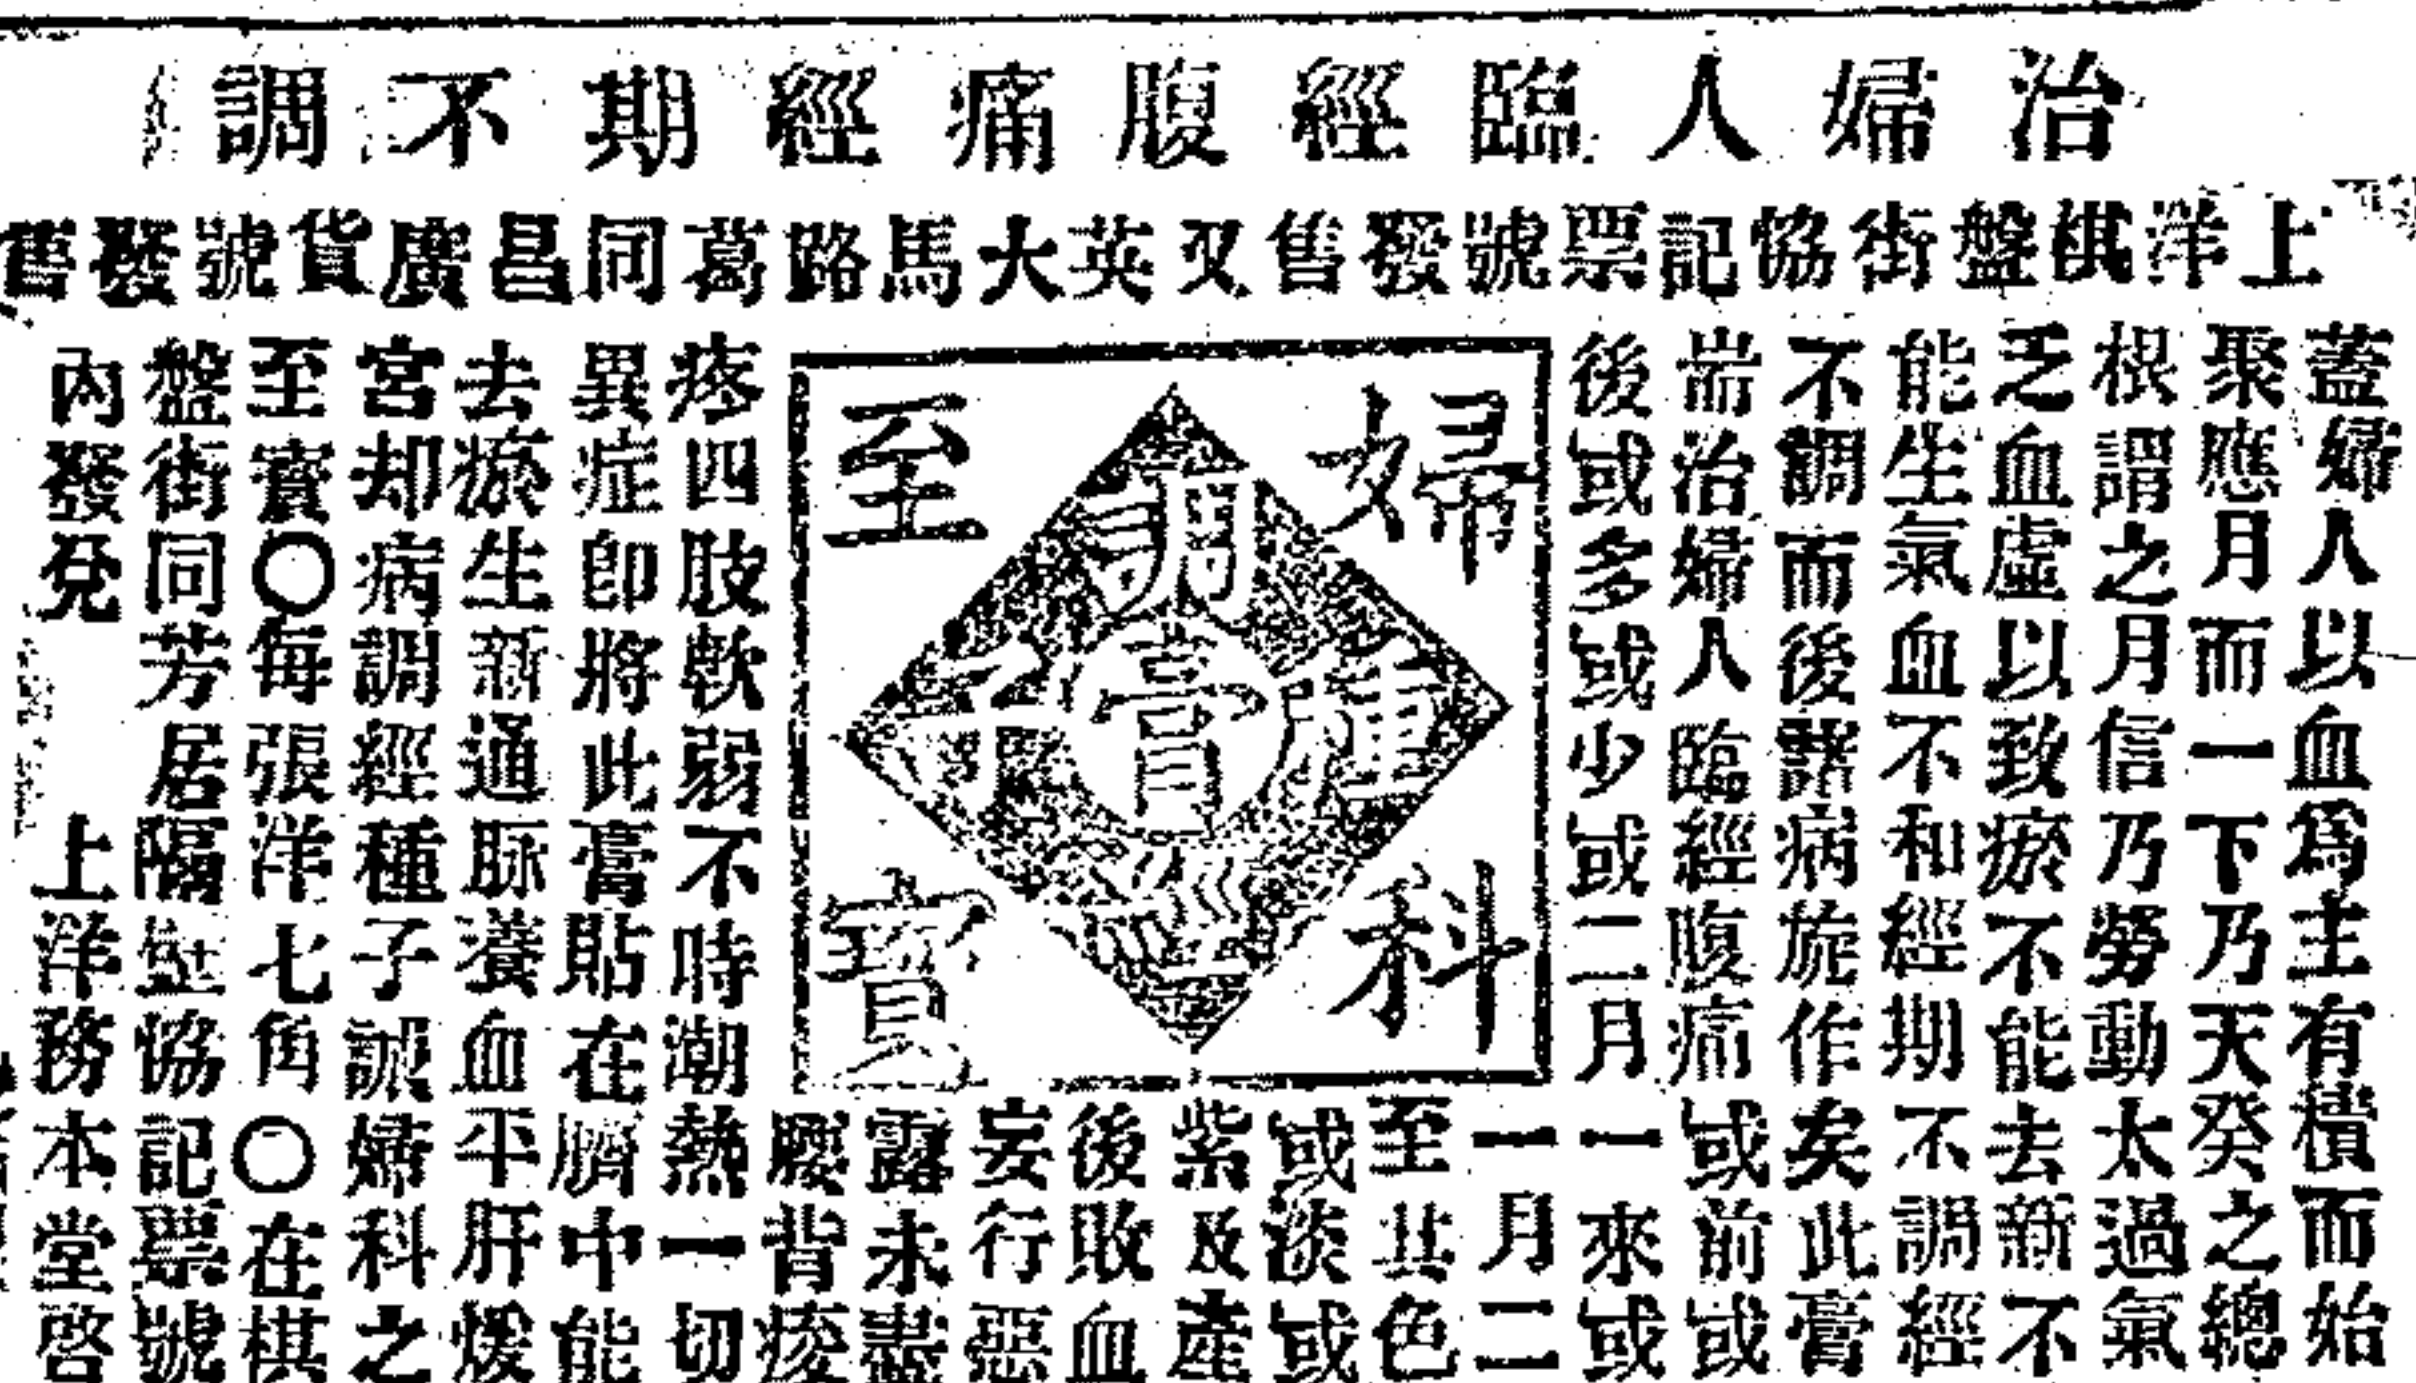 治婦人臨經腹痛經期不調
上洋棋盤街協記票號發售又英大馬路葛同昌廣貨號發售
蓋婦人以血爲主有積而始
聚應月而一下乃天癸之總
根謂之月信乃勞動太過氣
乏血虛以致瘀不能去新不
能生氣血不和經期不調經
不調而後諸病旋作矣此膏
耑治婦人臨經腹痛或前或
後或多或少或二月一來或
婦科
至寶
膏
一月二
至其色
或淡或
紫及產
後敗血
妄行惡
露未盡
腰背痠
疼四肢軟弱不時潮熱一切
異症卽將此膏貼在臍中能
去瘀生新通脉養血平肝煖
宮却病調經種子誠婦科之
至寶〇每張洋七角〇在棋
盤街同芳居隔壁協記票號
內發兌 上洋務本堂啓